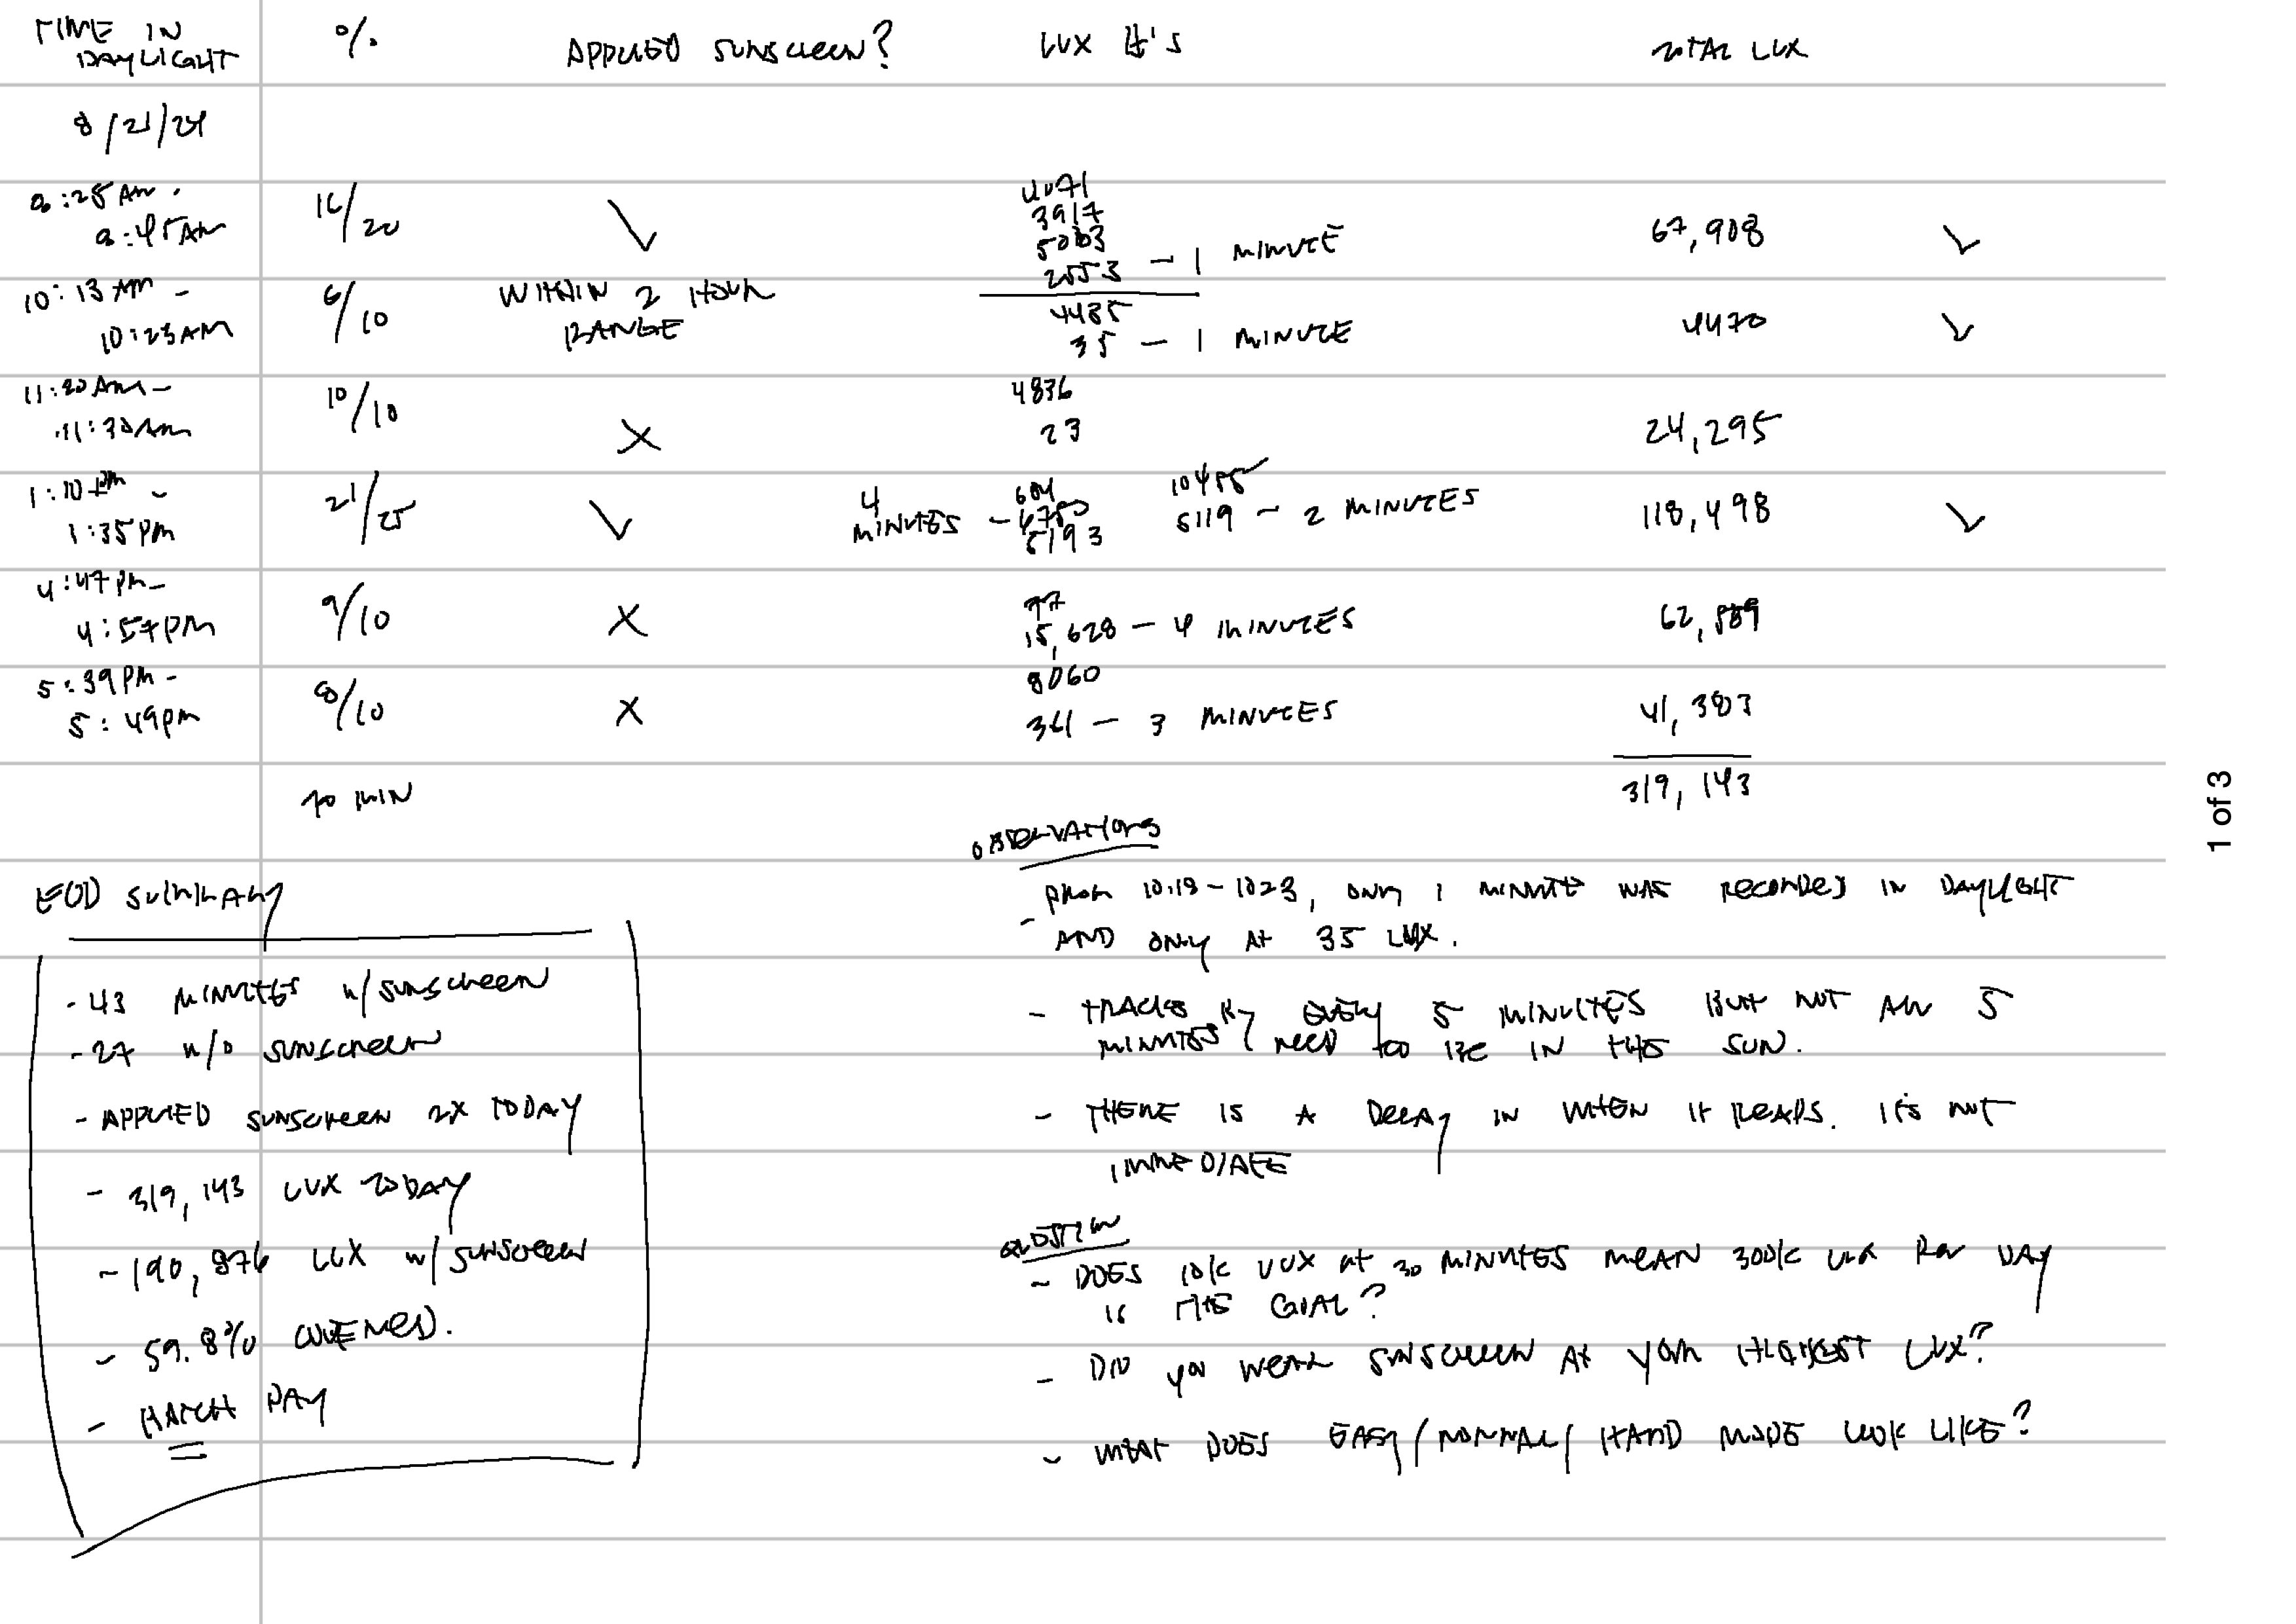 TIME IN DAYLIGHT % APPLIED SUNSCREEN? LUX #'S TOTAL LUX
8/21/24
8:25 AM - 8:45 AM 16/20 ✓ 4071
3917
5003
2553 - 1 MINUTE 67,908 ✓
10:13 AM - 10:23 AM 6/10 WITHIN 2 HOUR RANGE 4485
35 - 1 MINUTE 4470 ✓
11:20 AM - 11:30 AM 10/10 X 4836
23 24,295
1:10 PM - 1:35 PM 21/25 ✓ 4 MINUTES - 604
6193 10485
5119 - 2 MINUTES 118,498 ✓
4:47 PM - 4:57 PM 9/10 X 77
15,628 - 4 MINUTES 62,589
5:39 PM - 5:49 PM 8/10 X 8060
361 - 3 MINUTES 41,383
70 MIN 319,143
EOD SUMMARY
- 43 MINUTES w/ SUNSCREEN
- 27 w/o SUNSCREEN
- APPLIED SUNSCREEN 2X TODAY
- 319,143 LUX TODAY
- 190,876 LUX w/ SUNSCREEN
- 59.8% COVERED.
- HATCH DAY
OBSERVATIONS
- FROM 10:18 - 1023, ONLY 1 MINUTE WAS RECORDED IN DAYLIGHT
AND ONLY AT 35 LUX.
- TRACKS BY EVERY 5 MINUTES BUT NOT ALL 5
MINUTES NEED TO BE IN THE SUN.
- THERE IS A DELAY IN WHEN IT READS. IT'S NOT
IMMEDIATE
QUESTION
- DOES 10K LUX AT 30 MINUTES MEAN 300K LUX PER DAY
IS THE GOAL?
- DID YOU WEAR SUNSCREEN AT YOUR HIGHEST LUX?
- WHAT DOES EASY/NORMAL/HARD MODE LOOK LIKE?
1 of 3